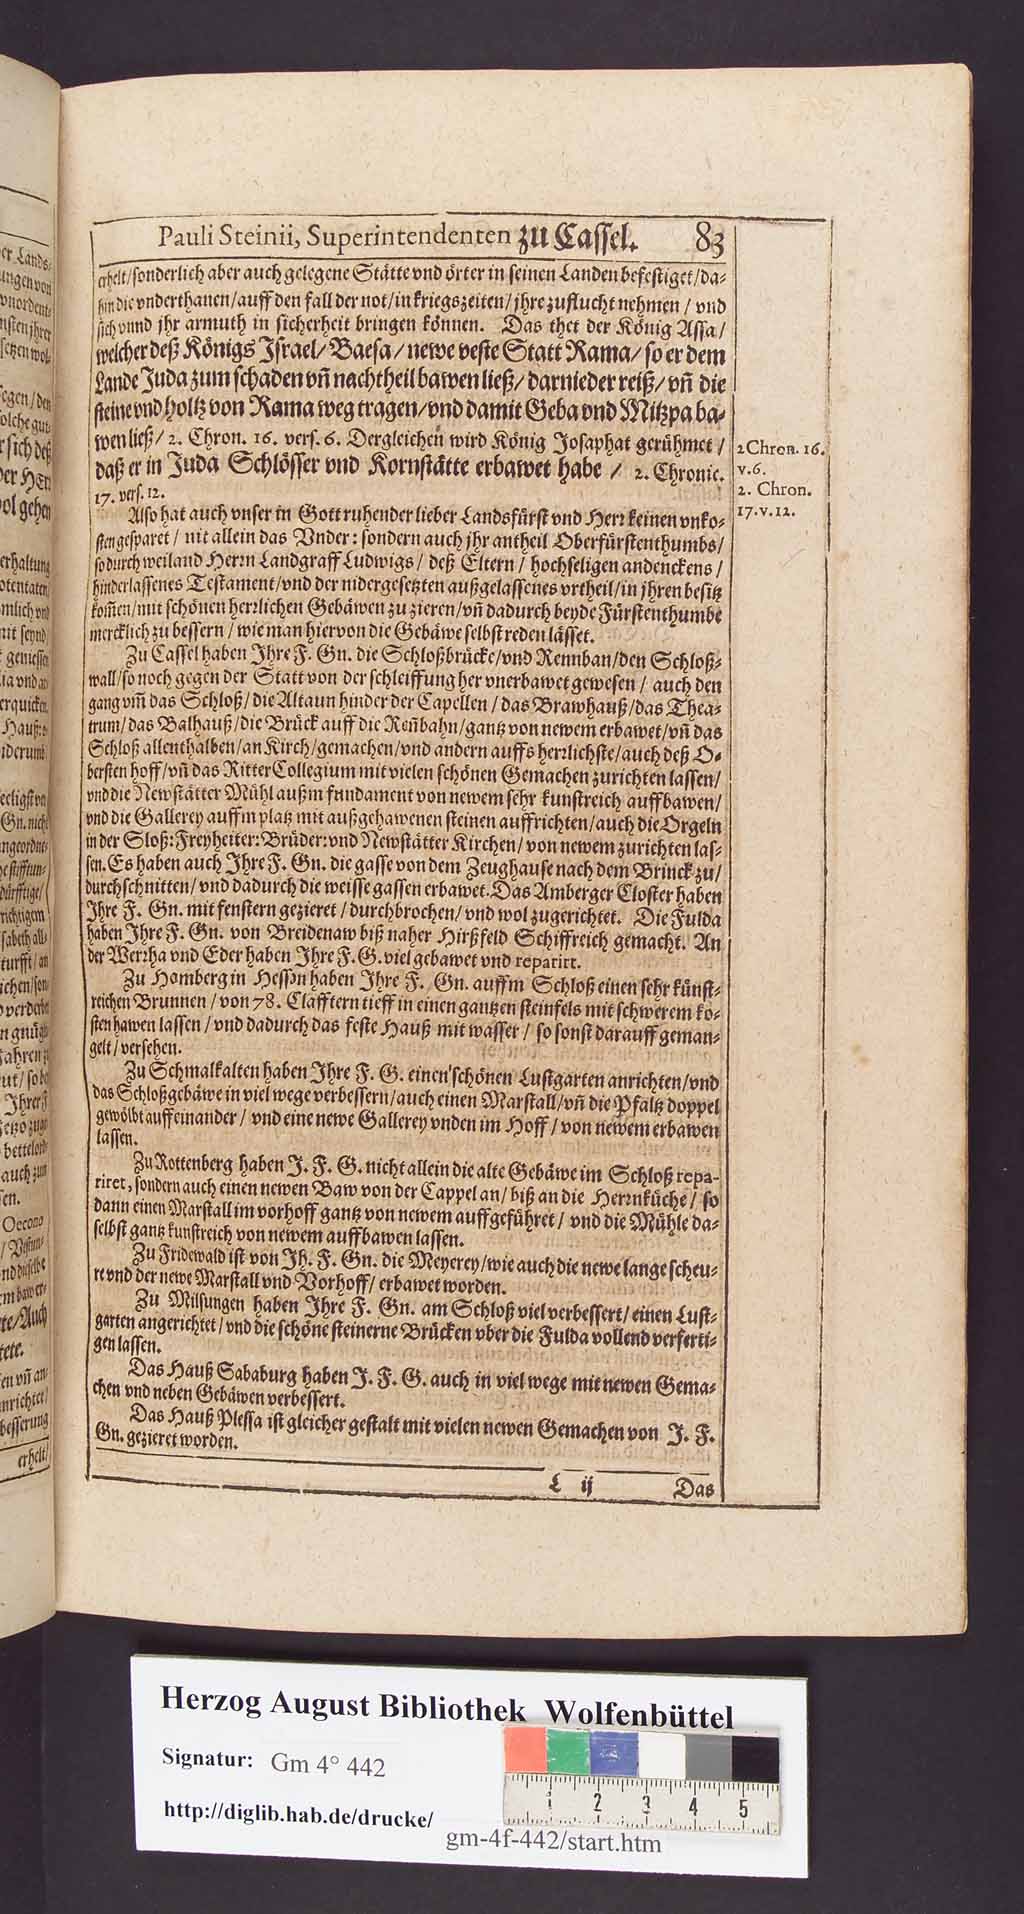 Pauli Steinii, Superintendenten zu Cassel. 83
erhelt/sonderlich aber auch gelegene Stätte vnd örter in seinen Landen befestiget/da-
hin die vnderthanen/auff den fall der not/in kriegszeiten/jhre zuflucht nehmen/vnd
sich vnnd jhr armuth in sicherheit bringen können. Das thet der König Assa/
welcher deß Königs Israel/Baesa/newe veste Statt Rama/so er dem
Lande Juda zum schaden vn̄ nachtheil bawen ließ/darnieder reiß/vn̄ die
steine vnd holtz von Rama weg tragen/vnd damit Geba vnd Mitzpa ba-
wen ließ/2. Chron. 16. vers. 6. Dergleichen wird König Josaphat gerühmet/
daß er in Juda Schlösser vnd Kornstätte erbawet habe/2. Chronic.
17. vers. 12.
2 Chron. 16.
v. 6.
2. Chron.
17. v. 12.
Also hat auch vnser in Gott ruhender lieber Landsfürst vnd Herr keinen vnko-
sten gesparet/nit allein das Vnder: sondern auch jhr antheil Oberfürstenthumbs/
so durch weiland Herrn Landgraff Ludwigs/deß Eltern/hochseligen andenckens/
hinderlassenes Testament/vnd der nidergesetzten außgelassenes vrtheil/in jhren besitz
kom̄en/mit schönen herrlichen Gebäwen zu zieren/vn̄ dadurch beyde Fürstenthumbe
mercklich zu bessern/wie man hiervon die Gebäwe selbst reden lässet.
Zu Cassel haben Ihre F. Gn. die Schloßbrücke/vnd Rennban/den Schloß-
wall/so noch gegen der Statt von der schleiffung her vnerbawet gewesen/auch den
gang vm̄ das Schloß/die Altaun hinder der Capellen/das Brawhauß/das Thea-
trum/das Balhauß/die Brück auff die Ren̄bahn/gantz von newem erbawet/vn̄ das
Schloß allenthalben/an Kirch/gemachen/vnd andern auffs herrlichste/auch deß O-
bersten hoff/vn̄ das Ritter Collegium mit vielen schönen Gemachen zurichten lassen/
vnd die Newstätter Mühl außm fundament von newem sehr kunstreich auffbawen/
vnd die Gallerey auffm platz mit außgehawenen steinen auffrichten/auch die Orgeln
in der Sloß: Freyheiter: Brüder: vnd Newstätter Kirchen/von newem zurichten las-
sen. Es haben auch Ihre F. Gn. die gasse von dem Zeughause nach dem Brinck zu/
durchschnitten/vnd dadurch die weisse gassen erbawet. Das Amberger Closter haben
Ihre F. Gn. mit fenstern gezieret/durchbrochen/vnd wol zugerichtet. Die Fulda
haben Ihre F. Gn. von Breidenaw biß naher Hirßfeld Schiffreich gemacht. An
der Werrha vnd Eder haben Ihre F. G. viel gebawet vnd reparirt.
Zu Homberg in Hessn haben Ihre F. Gn. auffm Schloß einen sehr künst-
reichen Brunnen/von 78. Clafftern tieff in einen gantzen steinfels mit schwerem ko-
sten hawen lassen/vnd dadurch das feste Hauß mit wasser/so sonst darauff geman-
gelt/versehen.
Zu Schmalkalten haben Ihre F. G. einen schönen Lustgarten anrichten/vnd
das Schloßgebäwe in viel wege verbessern/auch einen Marstall/vn̄ die Pfaltz doppel
gewölbt auff einander/vnd eine newe Gallerey vnden im Hoff/von newem erbawen
lassen.
Zu Rottenberg haben J. F. G. nicht allein die alte Gebäwe im Schloß repa-
riret, sondern auch einen newen Baw von der Cappel an/biß an die Herrnküche/so
dann einen Marstall im vorhoff gantz von newem auffgeführet/vnd die Mühle da-
selbst gantz kunstreich von newem auffbawen lassen.
Zu Fridewald ist von Jh. F. Gn. die Meyerey/wie auch die newe lange scheu-
re vnd der newe Marstall vnd Vorhoff/erbawet worden.
Zu Milsungen haben Ihre F. Gn. am Schloß viel verbessert/einen Lust-
garten angerichtet/vnd die schöne steinerne Brücken vber die Fulda vollend verferti-
gen lassen.
Das Hauß Sababurg haben J. F. G. auch in viel wege mit newen Gema-
chen vnd neben Gebäwen verbessert.
Das Hauß Plessa ist gleicher gestalt mit vielen newen Gemachen von J. F.
Gn. gezieret worden.
L ij Das
Herzog August Bibliothek Wolfenbüttel
Signatur: Gm 4° 442
http://diglib.hab.de/drucke/
gm-4f-442/start.htm
1 2 3 4 5